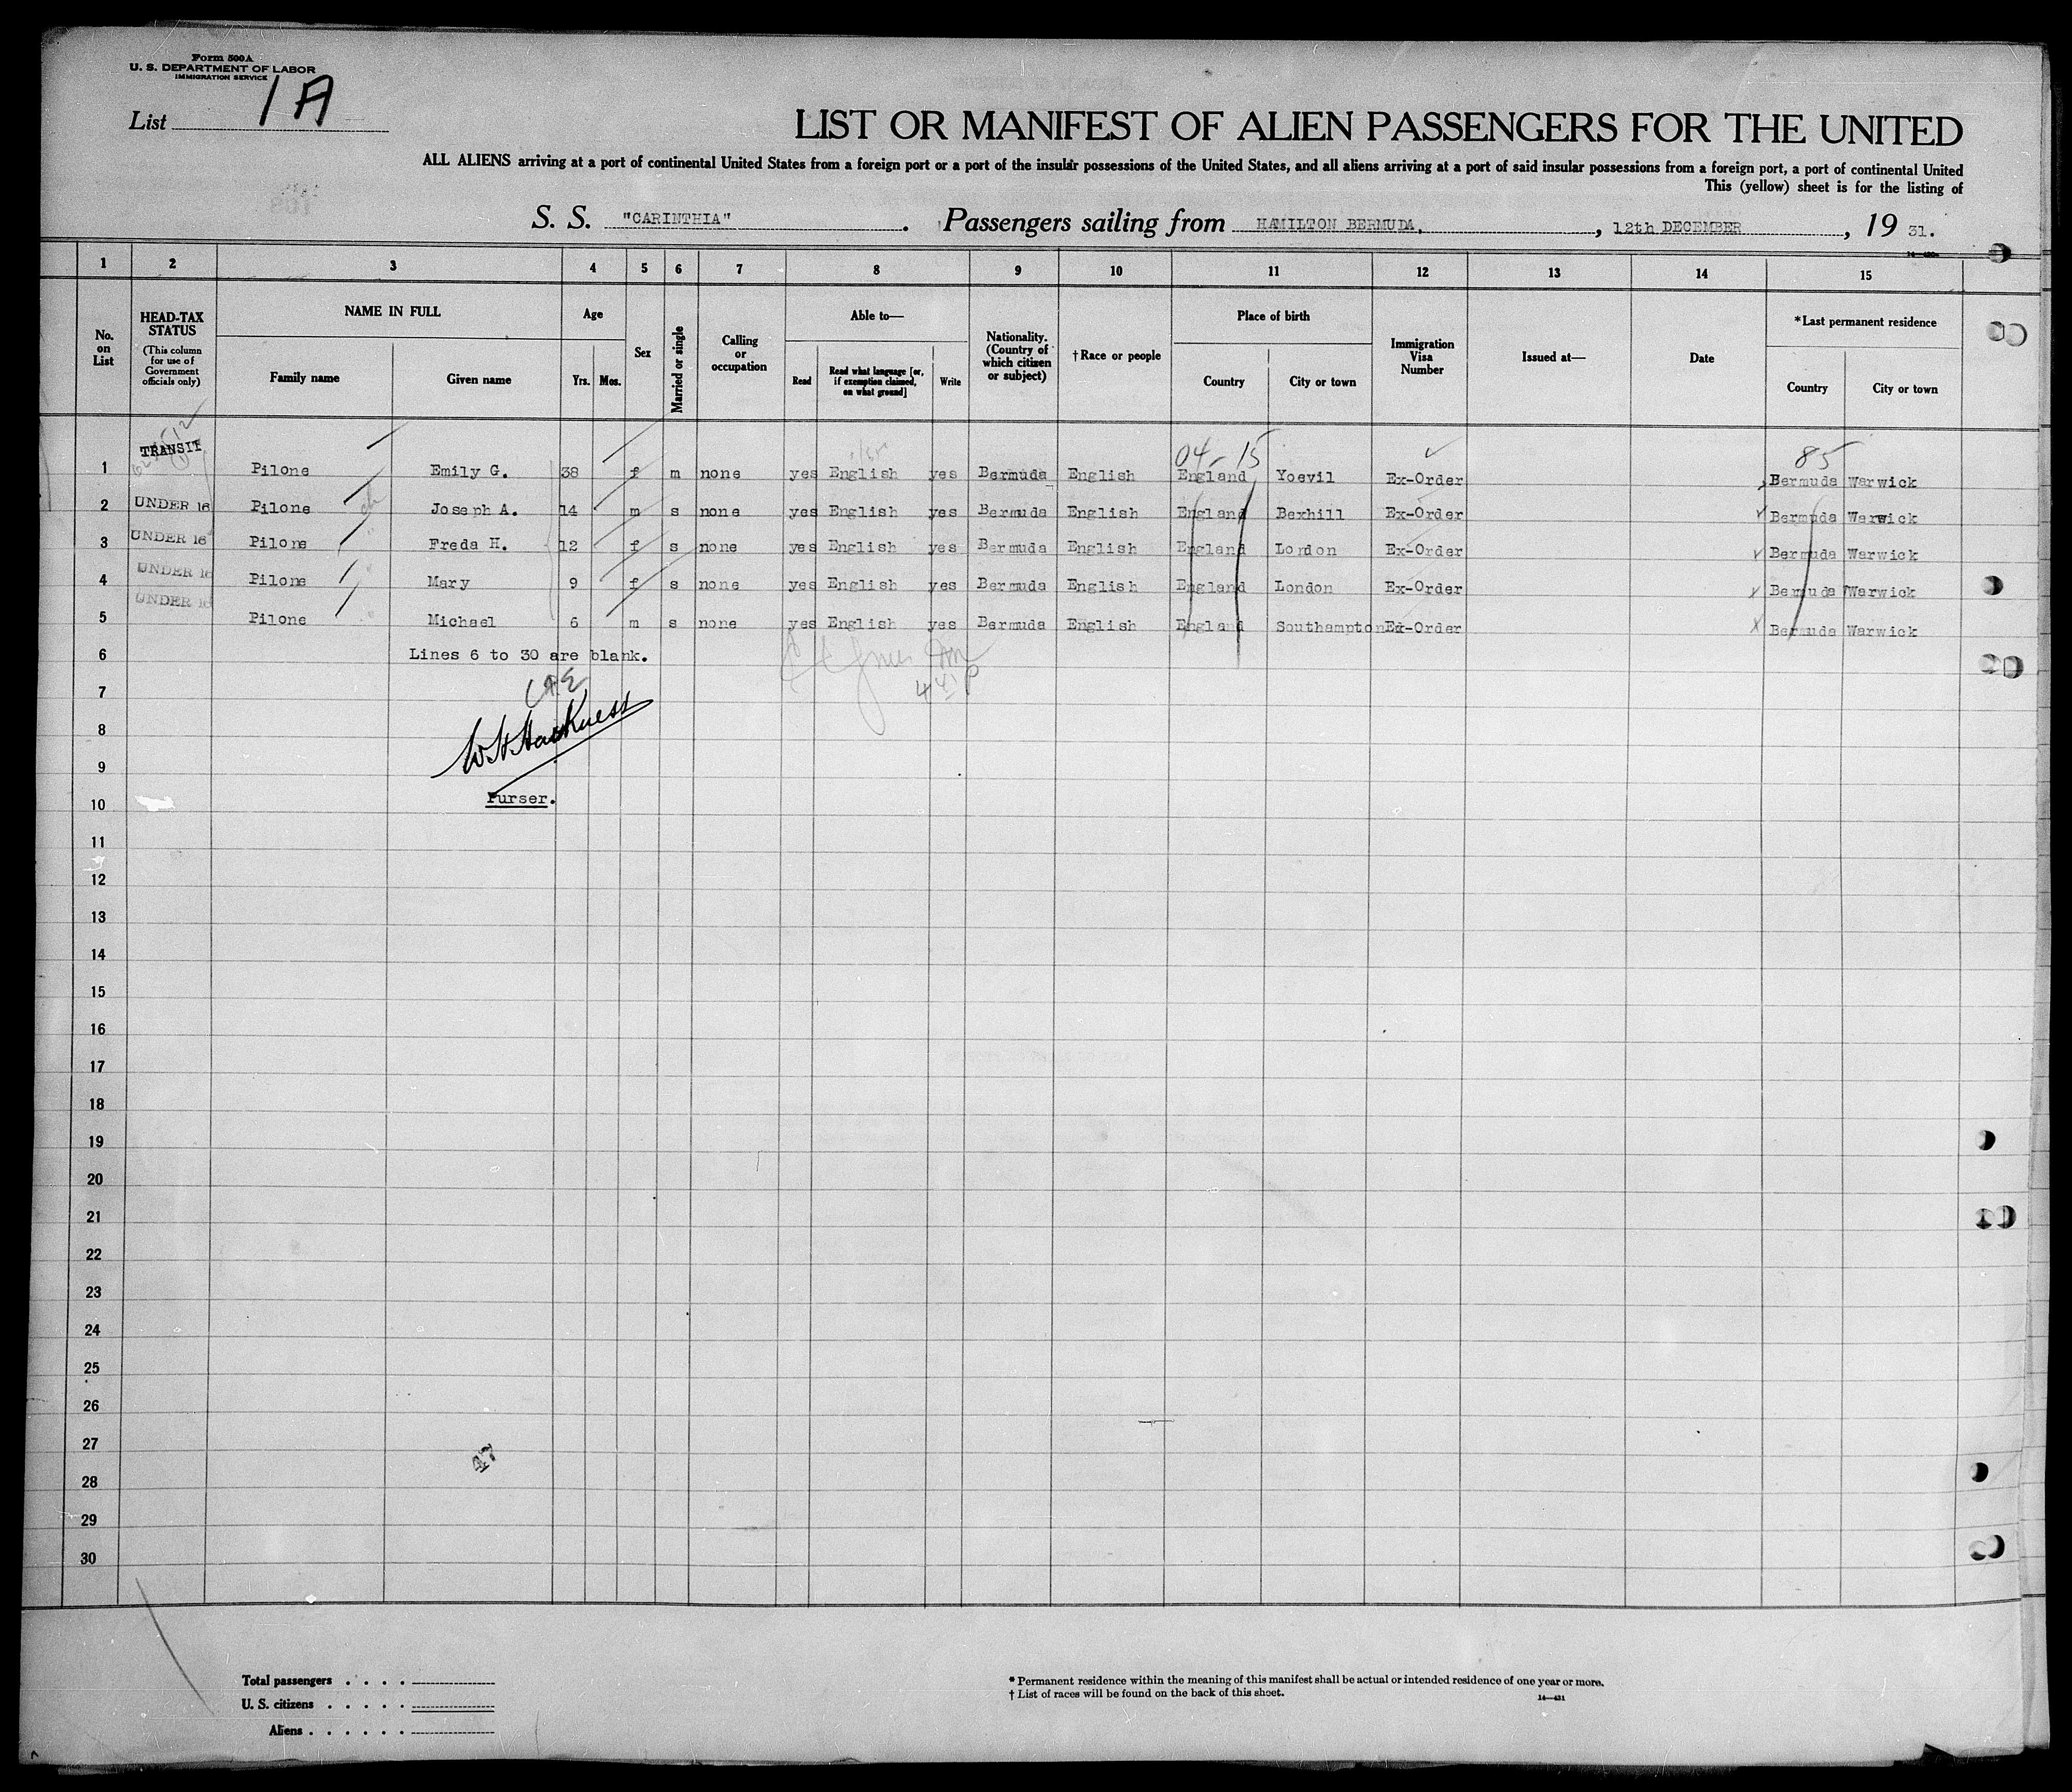 Form 500A
U. S. DEPARTMENT OF LABOR
IMMIGRATION SERVICE
List 1A
LIST OR MANIFEST OF ALIEN PASSENGERS FOR THE UNITED
ALL ALIENS arriving at a port of continental United States from a foreign port or a port of the insular possessions of the United States, and all aliens arriving at a port of said insular possessions from a foreign port, a port of continental United
This (yellow) sheet is for the listing of
S. S. "CARINTHIA". Passengers sailing from HAMILTON BERMUDA, 12th DECEMBER, 19 31.
1 2 3 4 5 6 7 8 9 10 11 12 13 14 15
No. on List
HEAD-TAX STATUS
(This column for use of Government officials only)
NAME IN FULL
Family name Given name
Age
Yrs. Mos.
Sex
Married or single
Calling or occupation
Able to—
Read Read what language [or, if exemption claimed, on what ground] Write
Nationality. (Country of which citizen or subject)
†Race or people
Place of birth
Country City or town
Immigration Visa Number
Issued at—
Date
*Last permanent residence
Country City or town
04-15 85
1 TRANSIT Pilone Emily G. 38 f m none yes English yes Bermuda English England Yoevil Ex-Order Bermuda Warwick
2 UNDER 16 Pilone Joseph A. 14 m s none yes English yes Bermuda English England Bexhill Ex-Order Bermuda Warwick
3 UNDER 16 Pilone Freda H. 12 f s none yes English yes Bermuda English England London Ex-Order Bermuda Warwick
4 UNDER 16 Pilone Mary 9 f s none yes English yes Bermuda English England London Ex-Order Bermuda Warwick
5 UNDER 16 Pilone Michael 6 m s none yes English yes Bermuda English England Southampton Ex-Order Bermuda Warwick
6 Lines 6 to 30 are blank.
7
8 W H Harkness
9
10 Purser.
11
12
13
14
15
16
17
18
19
20
21
22
23
24
25
26
27 47
28
29
30
Total passengers . . . .
U. S. citizens . . . . .
Aliens . . . . . .
* Permanent residence within the meaning of this manifest shall be actual or intended residence of one year or more.
† List of races will be found on the back of this sheet.
14—431